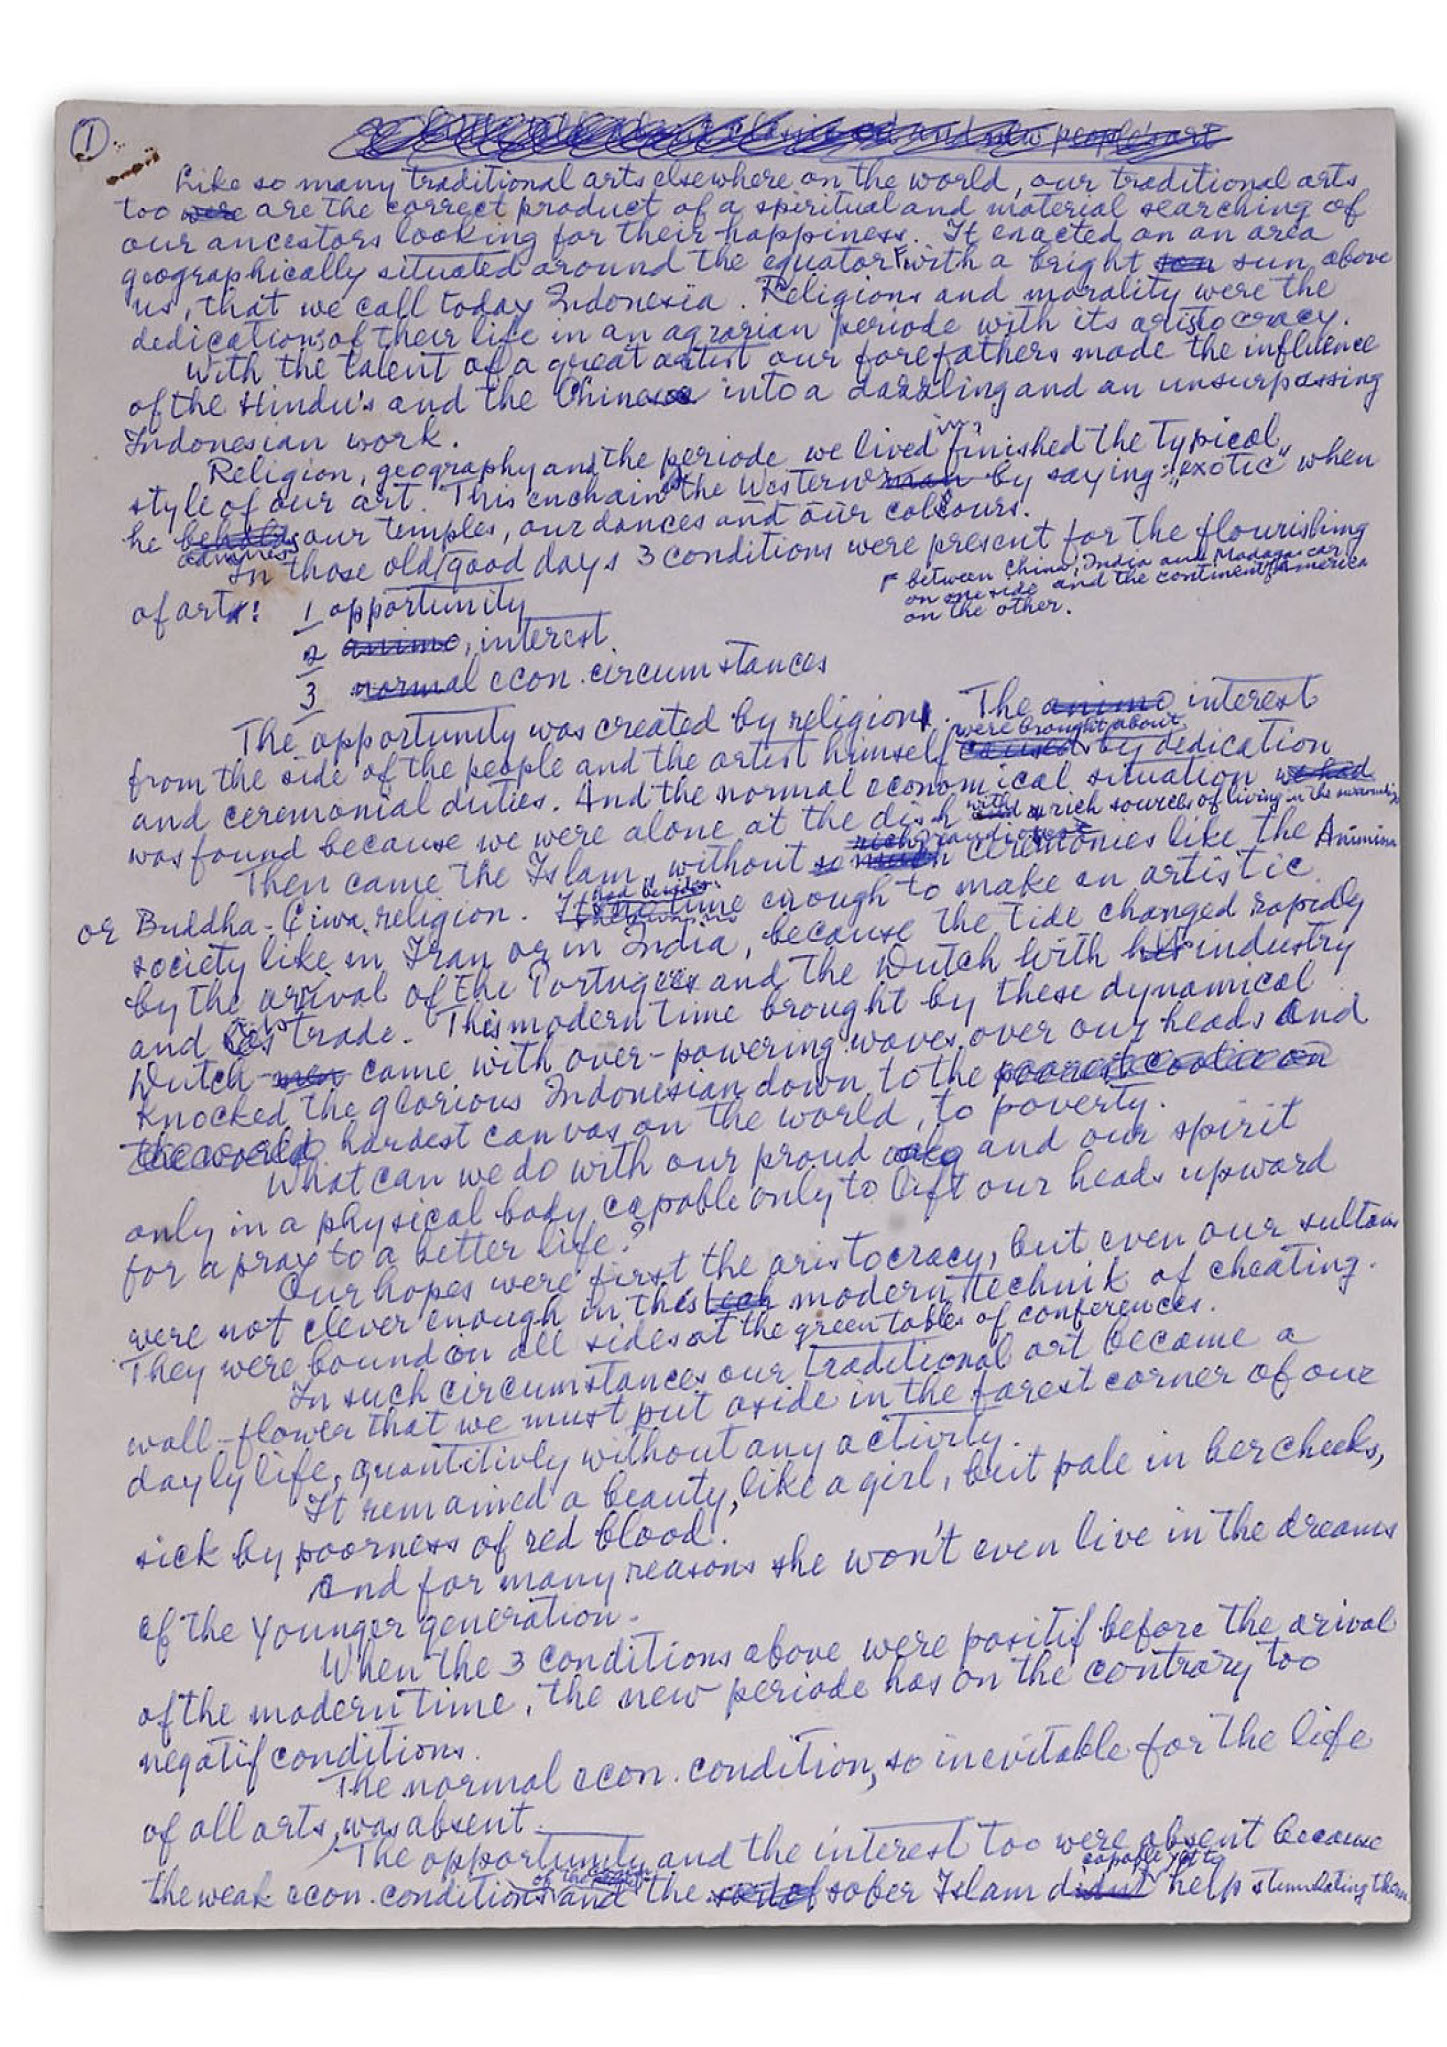 1
and new people's art
Like so many traditional arts elsewhere on the world, our traditional arts
too were are the correct product of a spiritual and material searching of
our ancestors looking for their happiness. It enacted on an area
geographically situated around the equator with a bright son sun above
us, that we call today Indonesia. Religions and morality were the
dedications of their life in an agrarian periode with its aristocracy.
With the talent of a great artist our forefathers made the influence
of the Hindu's and the Chinese into a dazzling and an unsurpassing
Indonesian work.
Religion, geography and the periode we lived in, finished the typical
style of our art. This enchained the Western man by saying: "exotic" when
he beholds admires our temples, our dances and our colours.
In those old/good days 3 conditions were present for the flourishing
between China, India and Madagascar
on one side and the continent of America
on the other.
of art: 1 opportunity
2 animo, interest.
3 normal econ. circumstances
The opportunity was created by religion. The animo interest
from the side of the people and the artist himself caused were brought about by dedication
and ceremonial duties. And the normal economical situation we had
was found because we were alone at the dish with rich sources of living in the
Then came the Islam, without so much ceremonies like the Animism
or Buddha-Ciwa religion. It time enough to make an artistic
society like in Iran or in India, because the tide changed rapidly
by the arrival of the Portugees and the Dutch with his industry
and trade. This modern time brought by these dynamical
Dutch men came with over-powering waves over our heads and
knocked the glorious Indonesian down to the poorest coolie on
the world hardest canvas on the world, to poverty.
What can we do with our proud and our spirit
only in a physical body capable only to lift our heads upward
for a pray to a better life?
Our hopes were first the aristocracy, but even our sultans
were not clever enough in this tech modern technik of cheating.
They were bound on all sides at the green tables of conferences.
In such circumstances our traditional art became a
wall-flower that we must put aside in the farest corner of our
dayly life, quantitivly without any activity.
It remained a beauty, like a girl, but pale in her cheeks,
sick by poorness of red blood.
And for many reasons she won't even live in the dreams
of the younger generation.
When the 3 conditions above were positif before the arival
of the modern time, the new periode has on the contrary too
negatif conditions.
The normal econ. condition, so inevitable for the life
of all arts, was absent.
The opportunity and the interest too were absent because
the weak econ. conditions of the and the sober Islam didn't capable to help stimulating them